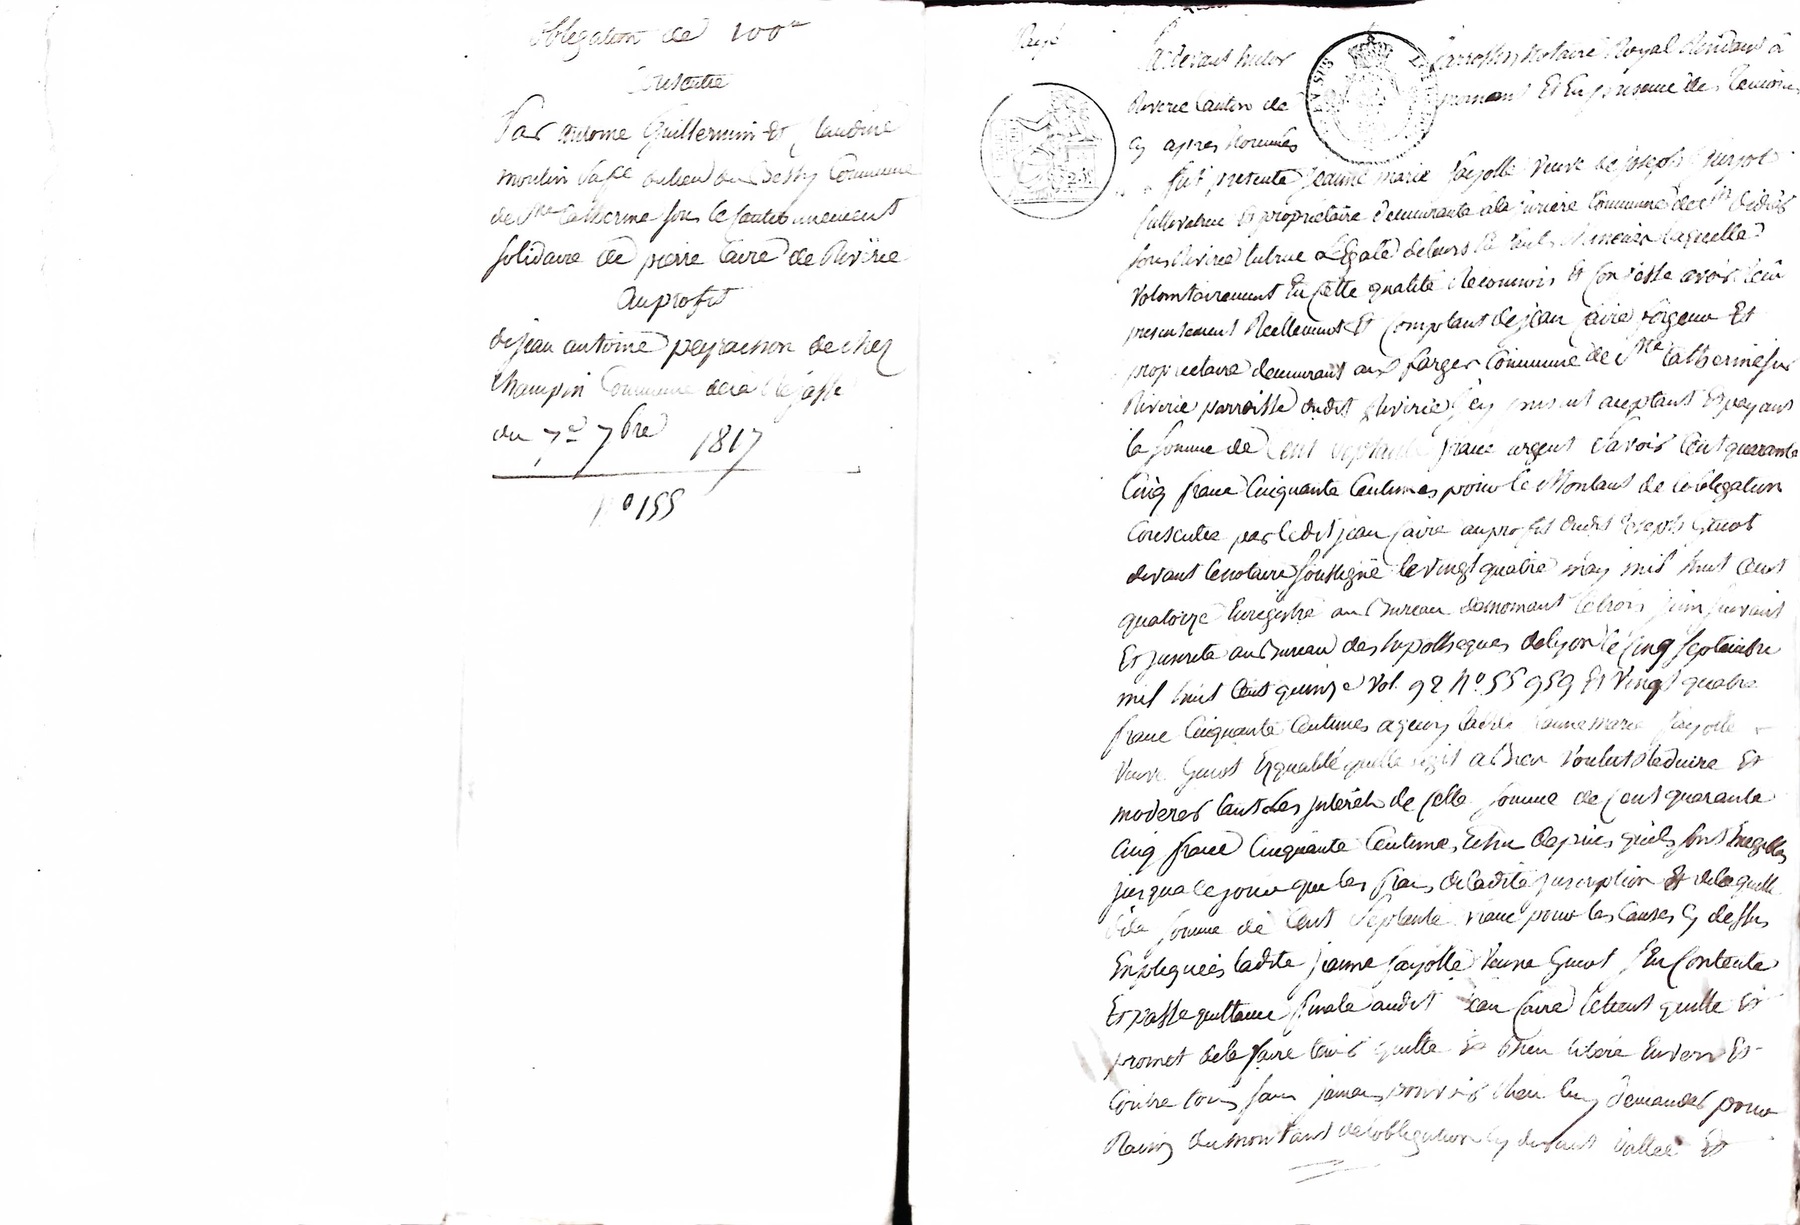 obligation de 100#
Consentie
Par antoine Guillermin et Claudine
moulin sa fe au lieu du Commune
de Ste Catherine sous le Cautionnement
solidaire de pierre Caire de Riverie
Au profit
de jean antoine peyrachon de chez
Champin Commune de
du 7e 7bre 1817
n° 155
Payé
Pardevant hector notaire Royal Résidant à
Riverie Canton de mornant Et En présence des temoins
cy apres nommés
fut presente jeanne marie fayolle veuve de joseph
Cultivatrice Et propriétaire demeurante a la Commune de St Didier
sous Riverie tutrice Légale de leurs laquelle
volontairement En Cette qualité Reconnois Et Confesse avoir Recu
presentement Reellement Et Comptant de jean Caire forgeur Et
proprietaire demeurant aux farges Commune de Ste Catherine sur
Riverie parroisse dudit Riverie Cy present acceptant Et payant
la somme de Cent septante franc argent Savoir Cent quarante
Cinq franc Cinquante Centimes pour le Montant de l'obligation
Consentie par ledit jean Caire au profit dudit joseph Guiot
devant le notaire soussigné le vingt quatre may mil huit Cent
quatorze Enregistré au Bureau de mornant le trois juin suivant
Et inscrite au Bureau des hypotheques de lyon le Cinq septembre
mil huit Cent quinze Vol. 92 N° 55959 Et Vingt quatre
franc Cinquante Centimes a quoy ladite jeanne marie fayolle
veuve Guiot En qualité quelle agit a bien voulut Reduire Et
moderer tant Les interets de Cette somme de Cent quarante
Cinq franc Cinquante Centimes Echu depuis quils sont Exigibles
jusqua ce jour que les frais de ladite inscription Et de laquelle
dite somme de Cent septante franc pour les Causes cy dessus
Expliquées ladite jeanne fayolle Veuve Guiot s'En Contente
Et passe quittance finale audit jean Caire le tient quitte Et
promet de le faire tenir quitte Et bien libéré Envers Et
Contre tous sans jamais pouvoir Rien luy demander pour
Raison du montant de l'obligation cy devant dattée Et